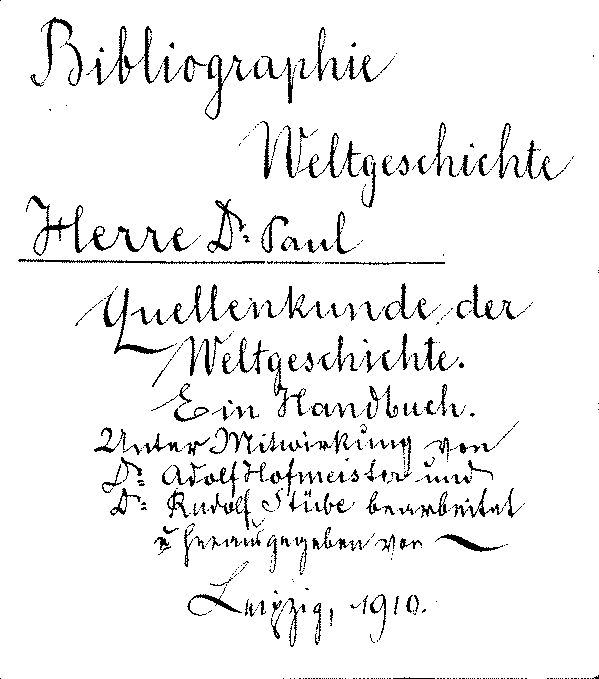 Bibliographie
Weltgeschichte
Herre Dr. Paul
Quellenkunde der
Weltgeschichte.
Ein Handbuch.
Unter Mitwirkung von
Dr. Adolf Hofmeister und
Dr. Rudolf Stübe bearbeitet
u herausgegeben von
Leipzig, 1910.